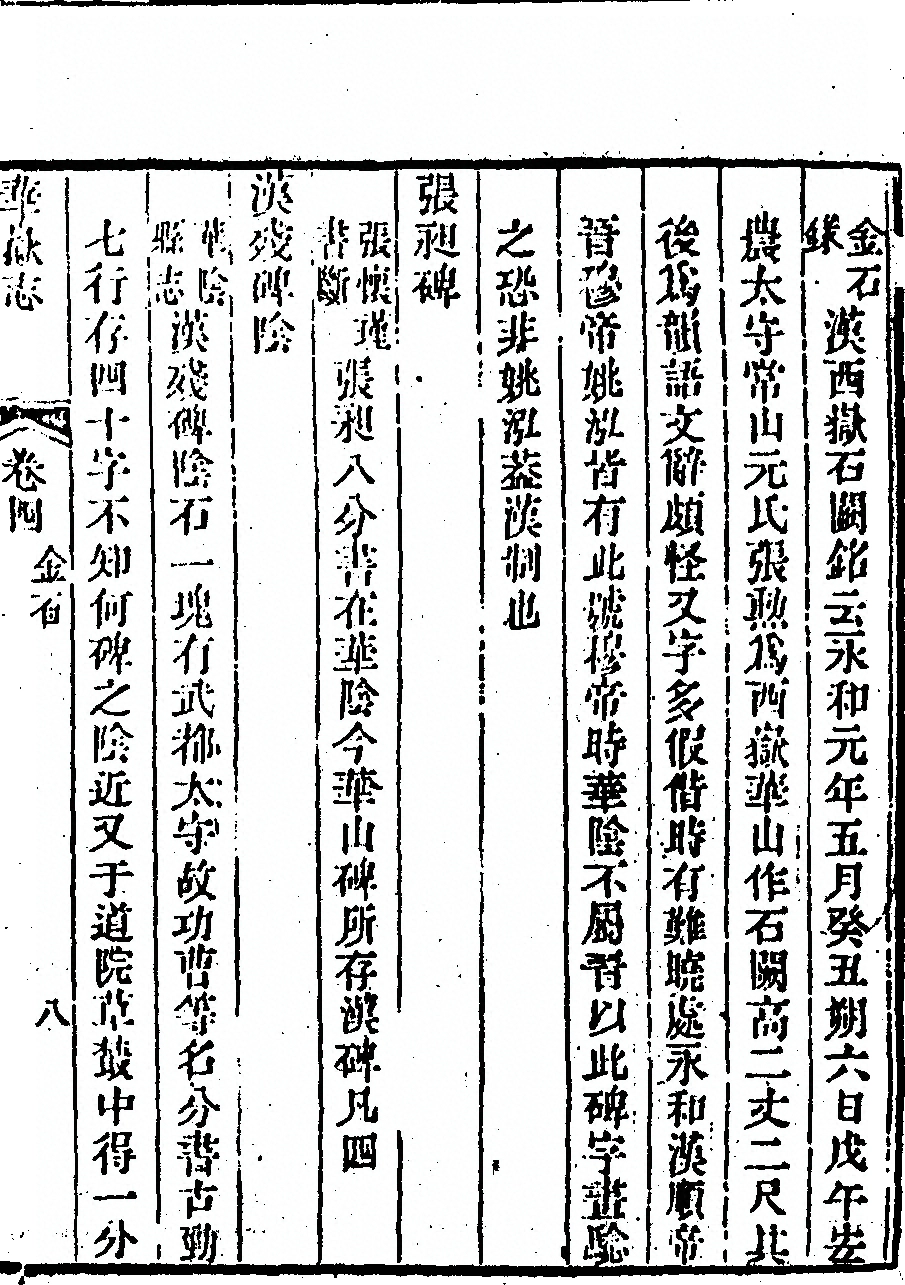 金石錄漢西嶽石闕銘云永和元年五月癸丑朔六日戊午
農太守常山元氏張勲爲西嶽華山作石闕高二丈二尺其
後爲韻語文辭頗怪又字多假借時有難曉處永和漢順帝
晋穆帝姚泓皆有此號穆帝時華陰不屬晋以此碑字畫驗
之恐非姚泓葢漢制也
張昶碑
張懷瓘書斷張昶八分書在華陰今華山碑所存漢碑凡四
漢殘碑陰
華陰縣志漢殘碑陰石一塊有武都太守故功曹等名分書古勁
七行存四十字不知何碑之陰近又于道院草叢中得一分
華嶽志 卷四 金石 八